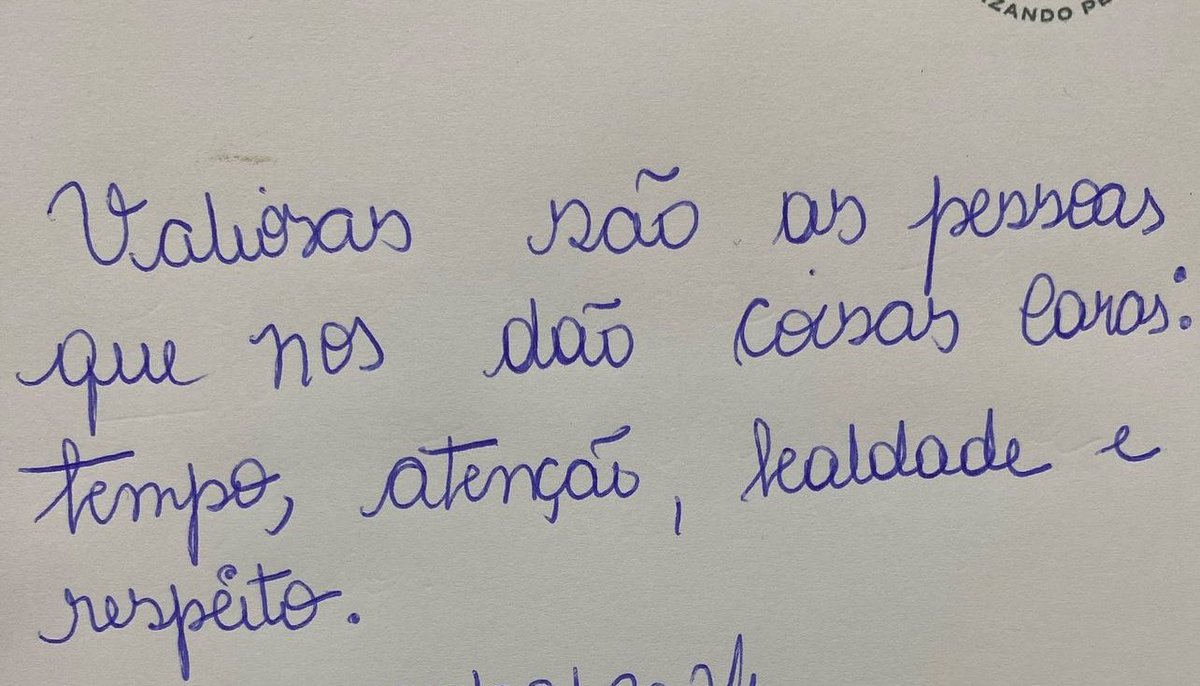 ZANDO PE
Valiosas são as pessoas
que nos dão coisas caras:
tempo, atenção, lealdade e
respeito.